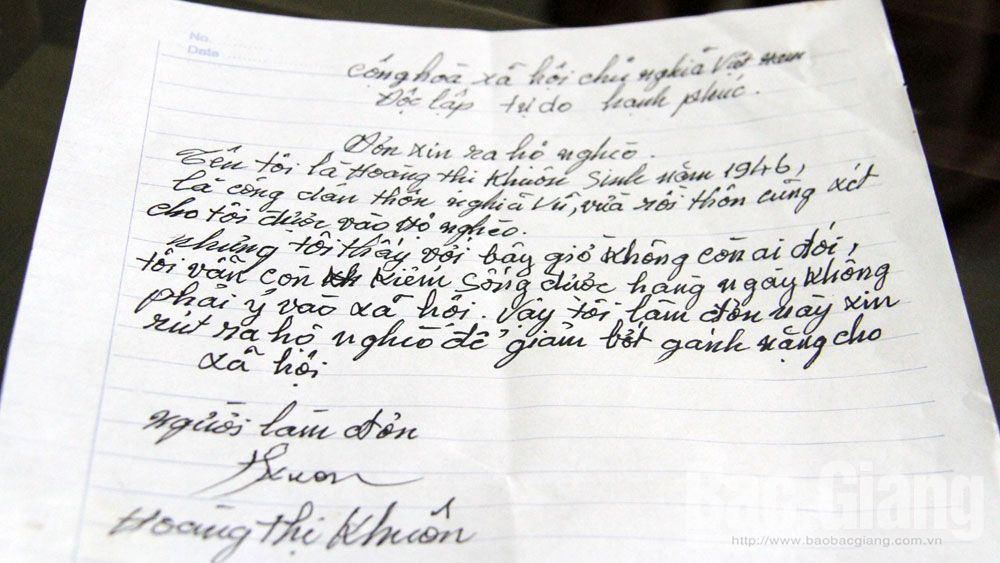 No. ........
Date ........
Cộng hoà xã hội chủ nghĩa Việt Nam
Độc lập tự do hạnh phúc.
Đơn xin ra hộ nghèo.
Tên tôi là Hoàng Thị Khuôn Sinh năm 1946,
là công dân thôn nghĩa Vũ, vừa rồi thôn cũng xét
cho tôi được vào hộ nghèo.
nhưng tôi thấy với bây giờ không còn ai đói,
tôi vẫn còn kiếm sống được hàng ngày không
phải ỷ vào xã hội. Vậy tôi làm đơn này xin
rút ra hộ nghèo để giảm bớt gánh nặng cho
xã hội
người làm đơn
Khuôn
Hoàng Thị Khuôn
Bac Giang
http://www.baobacgiang.com.vn